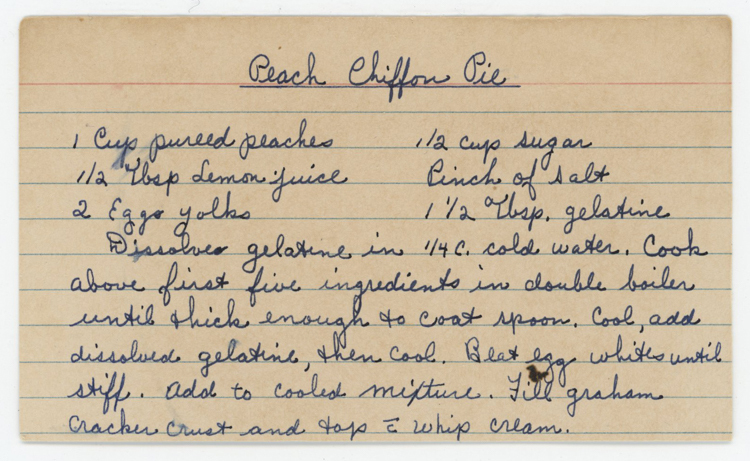 Peach Chiffon Pie
1 Cup pureed peaches 1/2 cup sugar
1/2 Tbsp Lemon juice Pinch of salt
2 Eggs yolks 1 1/2 Tbsp. gelatine
Dissolve gelatine in 1/4 C. cold water. Cook
above first five ingredients in double boiler
until thick enough to coat spoon. Cool, add
dissolved gelatine, then cool. Beat egg whites until
stiff. Add to cooled mixture. Fill graham
cracker crust and top c̄ whip cream.